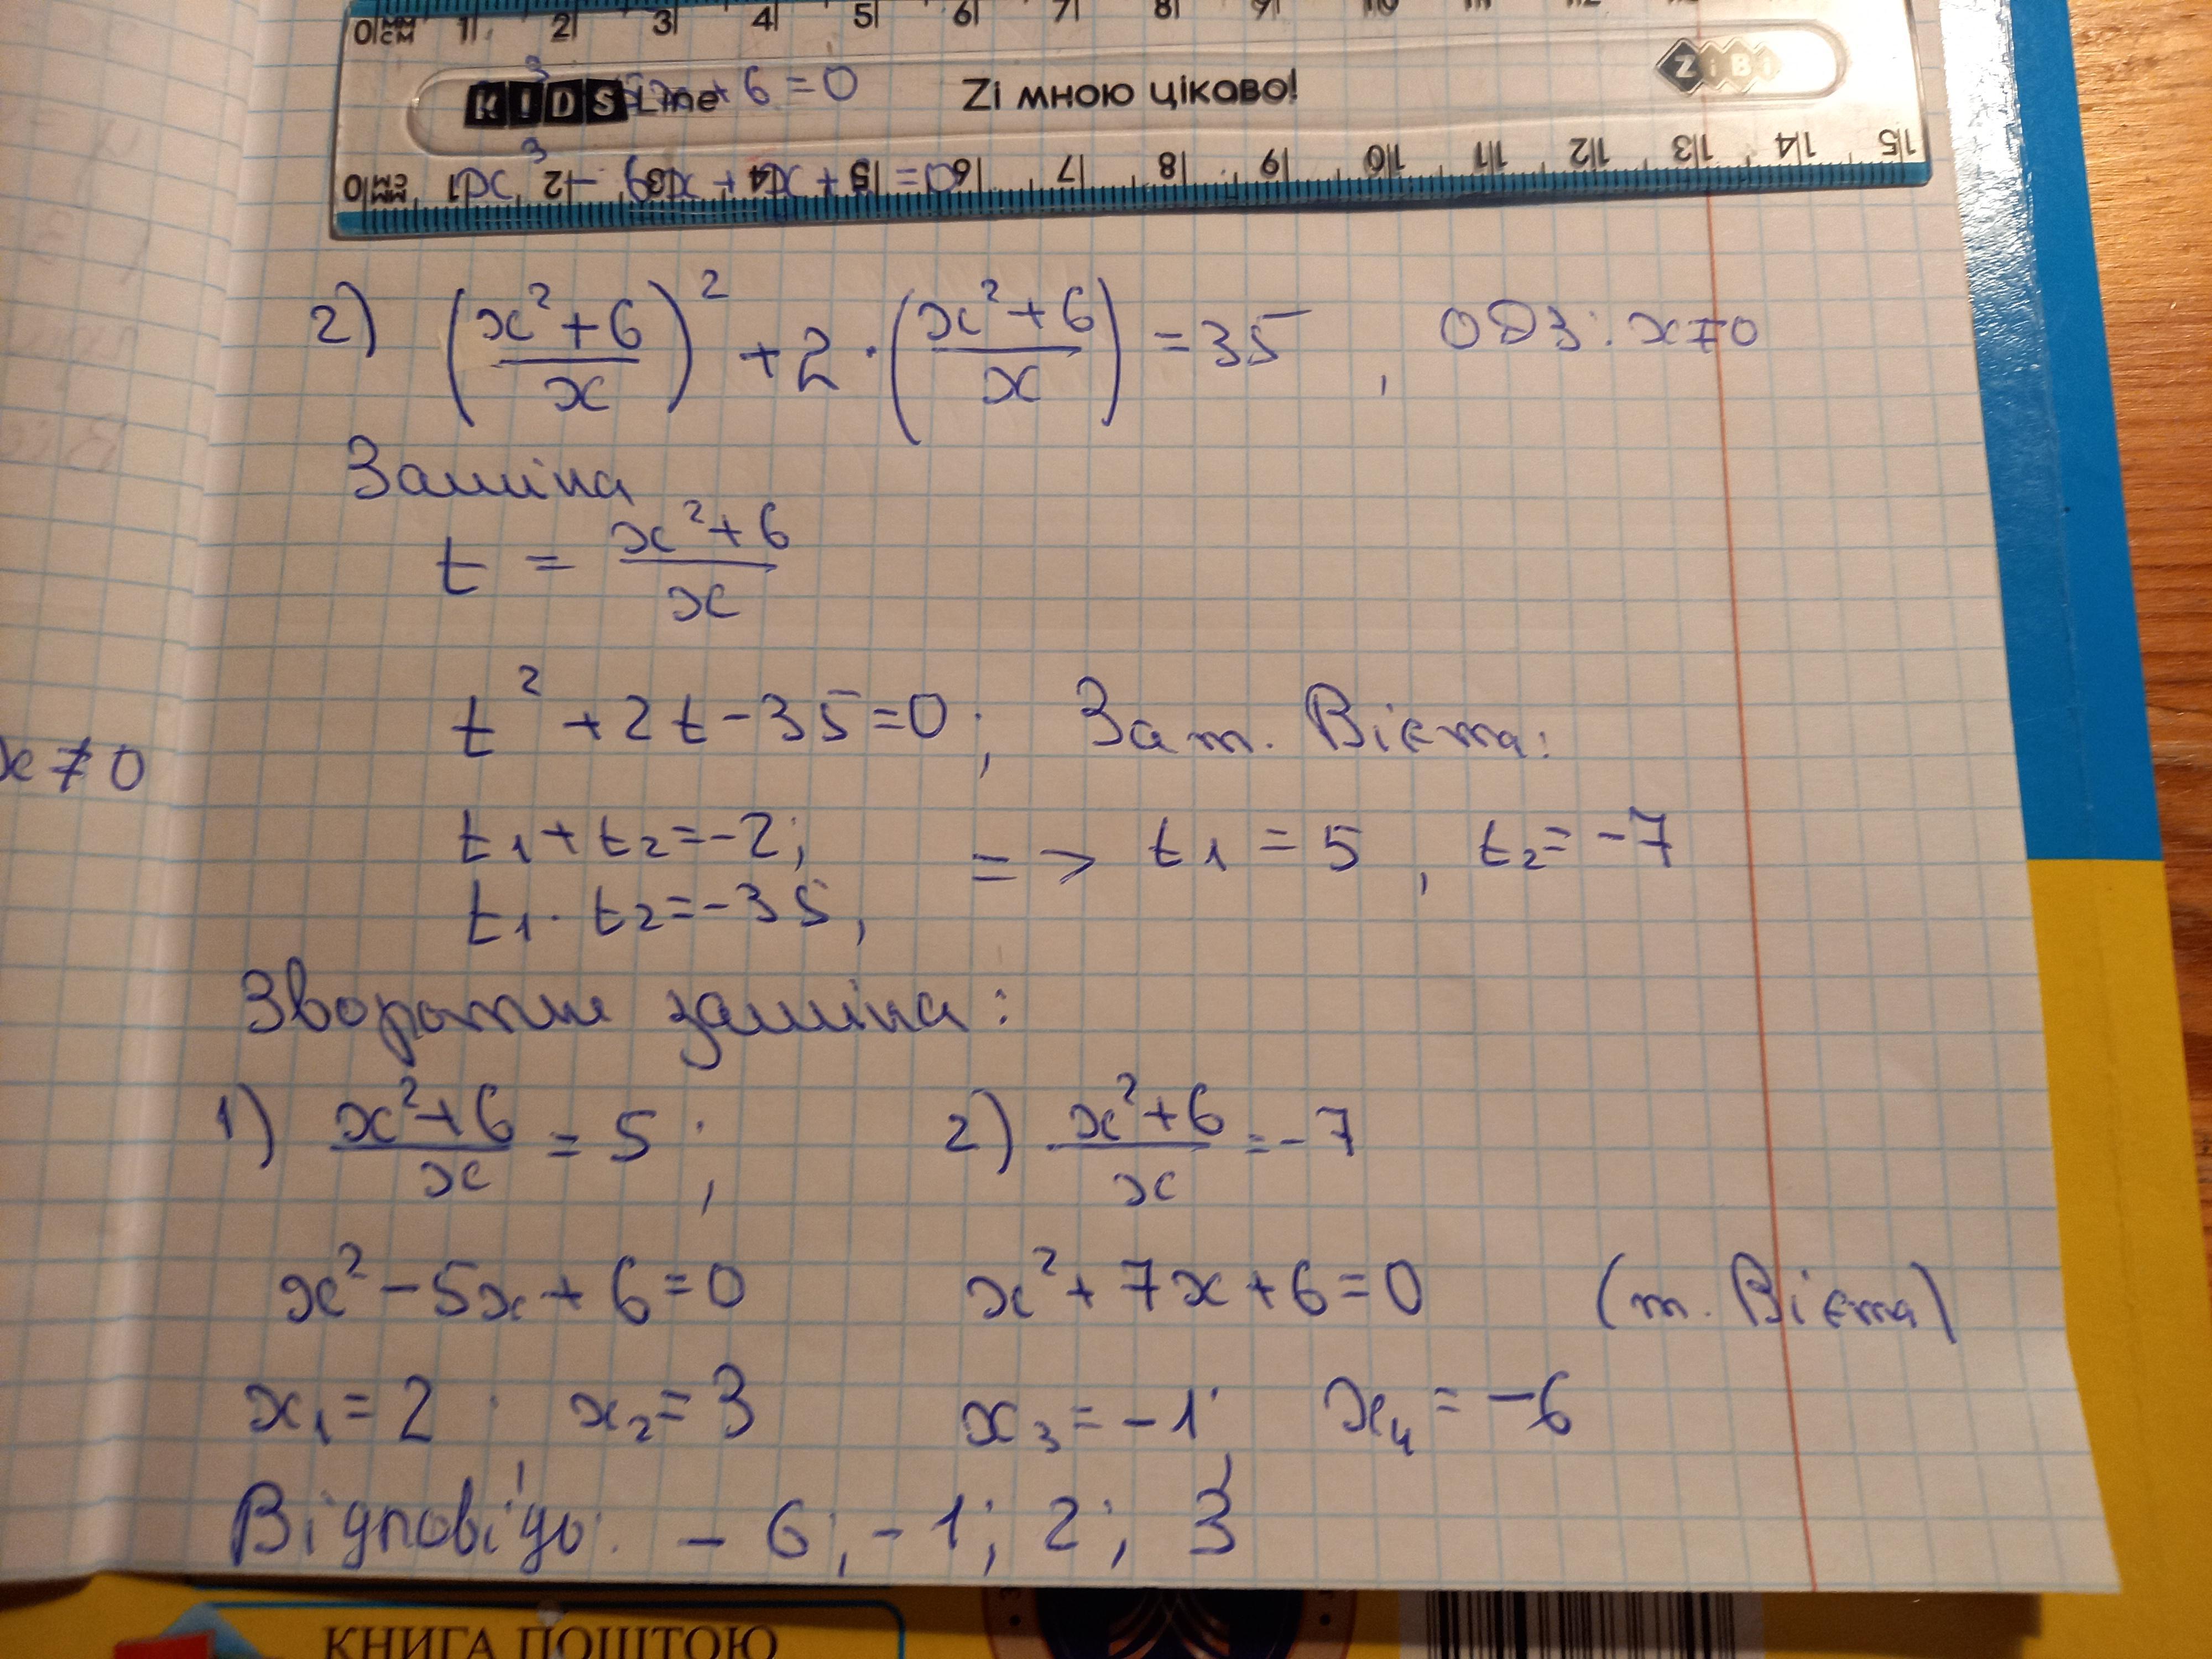 0 мм см 1 2 3 4 5 6 7 8 9
KIDS Line Zi мною цікаво! ZiBi
+ 6 = 0
0 мм см 1 2 3 4 5 6 7 8 9 10 11 12 13 14 15
2) (x²+6/x)² + 2 · (x²+6/x) = 35, ОДЗ: x≠0
Заміна
t = x²+6/x
t² + 2t - 35 = 0; За т. Вієта:
x ≠ 0
t₁ + t₂ = -2;
t₁ · t₂ = -35,
=> t₁ = 5, t₂ = -7
Зворотня заміна:
1) x²+6/x = 5; 2) x²+6/x = -7
x² - 5x + 6 = 0 x² + 7x + 6 = 0 (т. Вієта)
x₁ = 2 x₂ = 3 x₃ = -1 x₄ = -6
Відповідь: - 6; -1; 2; 3
КНИГА ПОШТОЮ